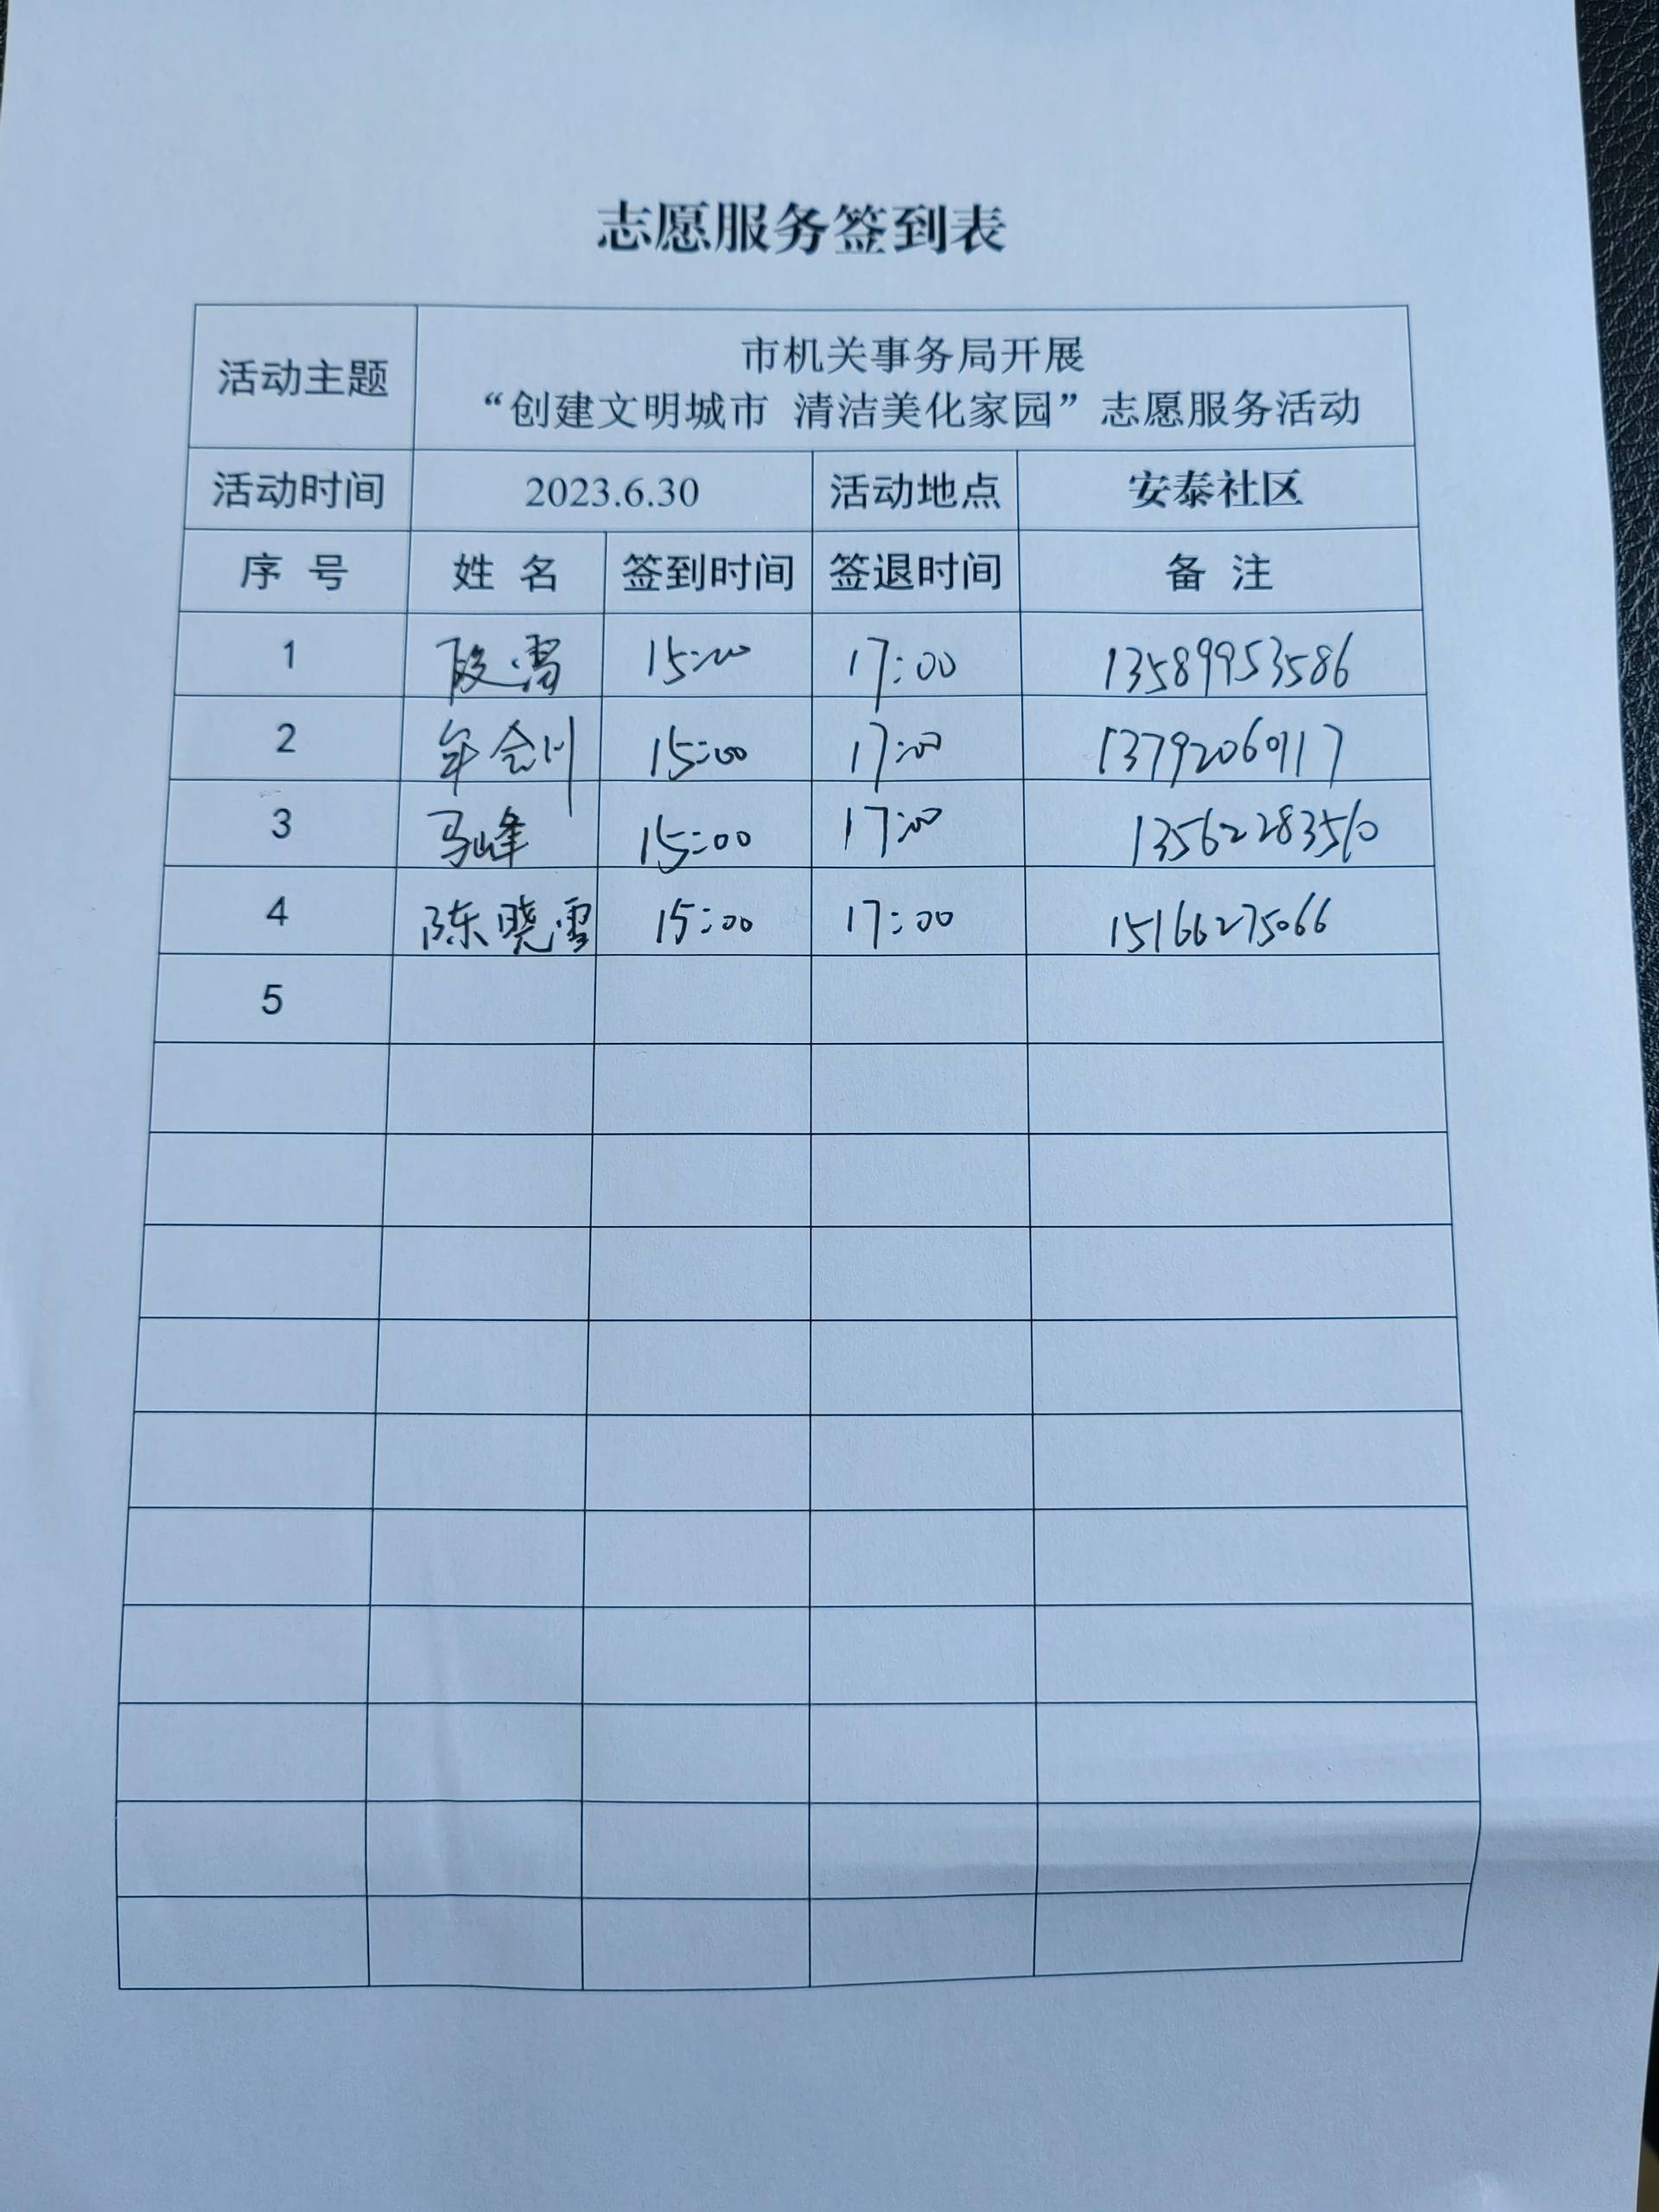 志愿服务签到表
活动主题
市机关事务局开展
“创建文明城市 清洁美化家园”志愿服务活动
活动时间 2023.6.30 活动地点 安泰社区
序 号 姓 名 签到时间 签退时间 备 注
1 段 15:00 17:00 13589953586
2 年会川 15:00 17:00
3 马峰 15:00 17:00 13562283510
4 陈晓雪 15:00 17:00 15166275066
5